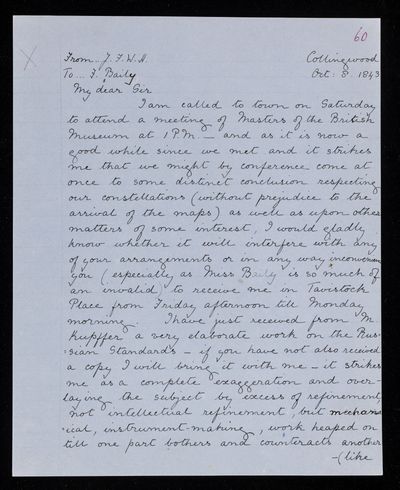 60
From J. F. W. H.
Collingwood
To... F. Baily
Oct: 8. 1843
My dear Sir
I am called to town on Saturday
to attend a meeting of Masters of the British
Museum at 1 P.M. — and as it is now a
good while since we met and it strikes
me that we might by conference come at
once to some distinct conclusion respecting
our constellations (without prejudice to the
arrival of the maps) as well as upon other
matters of some interest, I would gladly
know whether it will interfere with any
of your arrangements or in any way inconvenience
you (especially as Miss Baily is so much of
an invalid) to receive me in Tavistock
Place from Friday afternoon till Monday
morning. I have just received from M.
Kupffer a very elaborate work on the Rus-
-sian Standards — if you have not also received
a copy I will bring it with me — it strikes
me as a complete exaggeration and over-
laying the subject by excess of refinement,
not intellectual refinement, but mechan-
-ical, instrument-making, work heaped on
till one part bothers and counteracts another
-(like